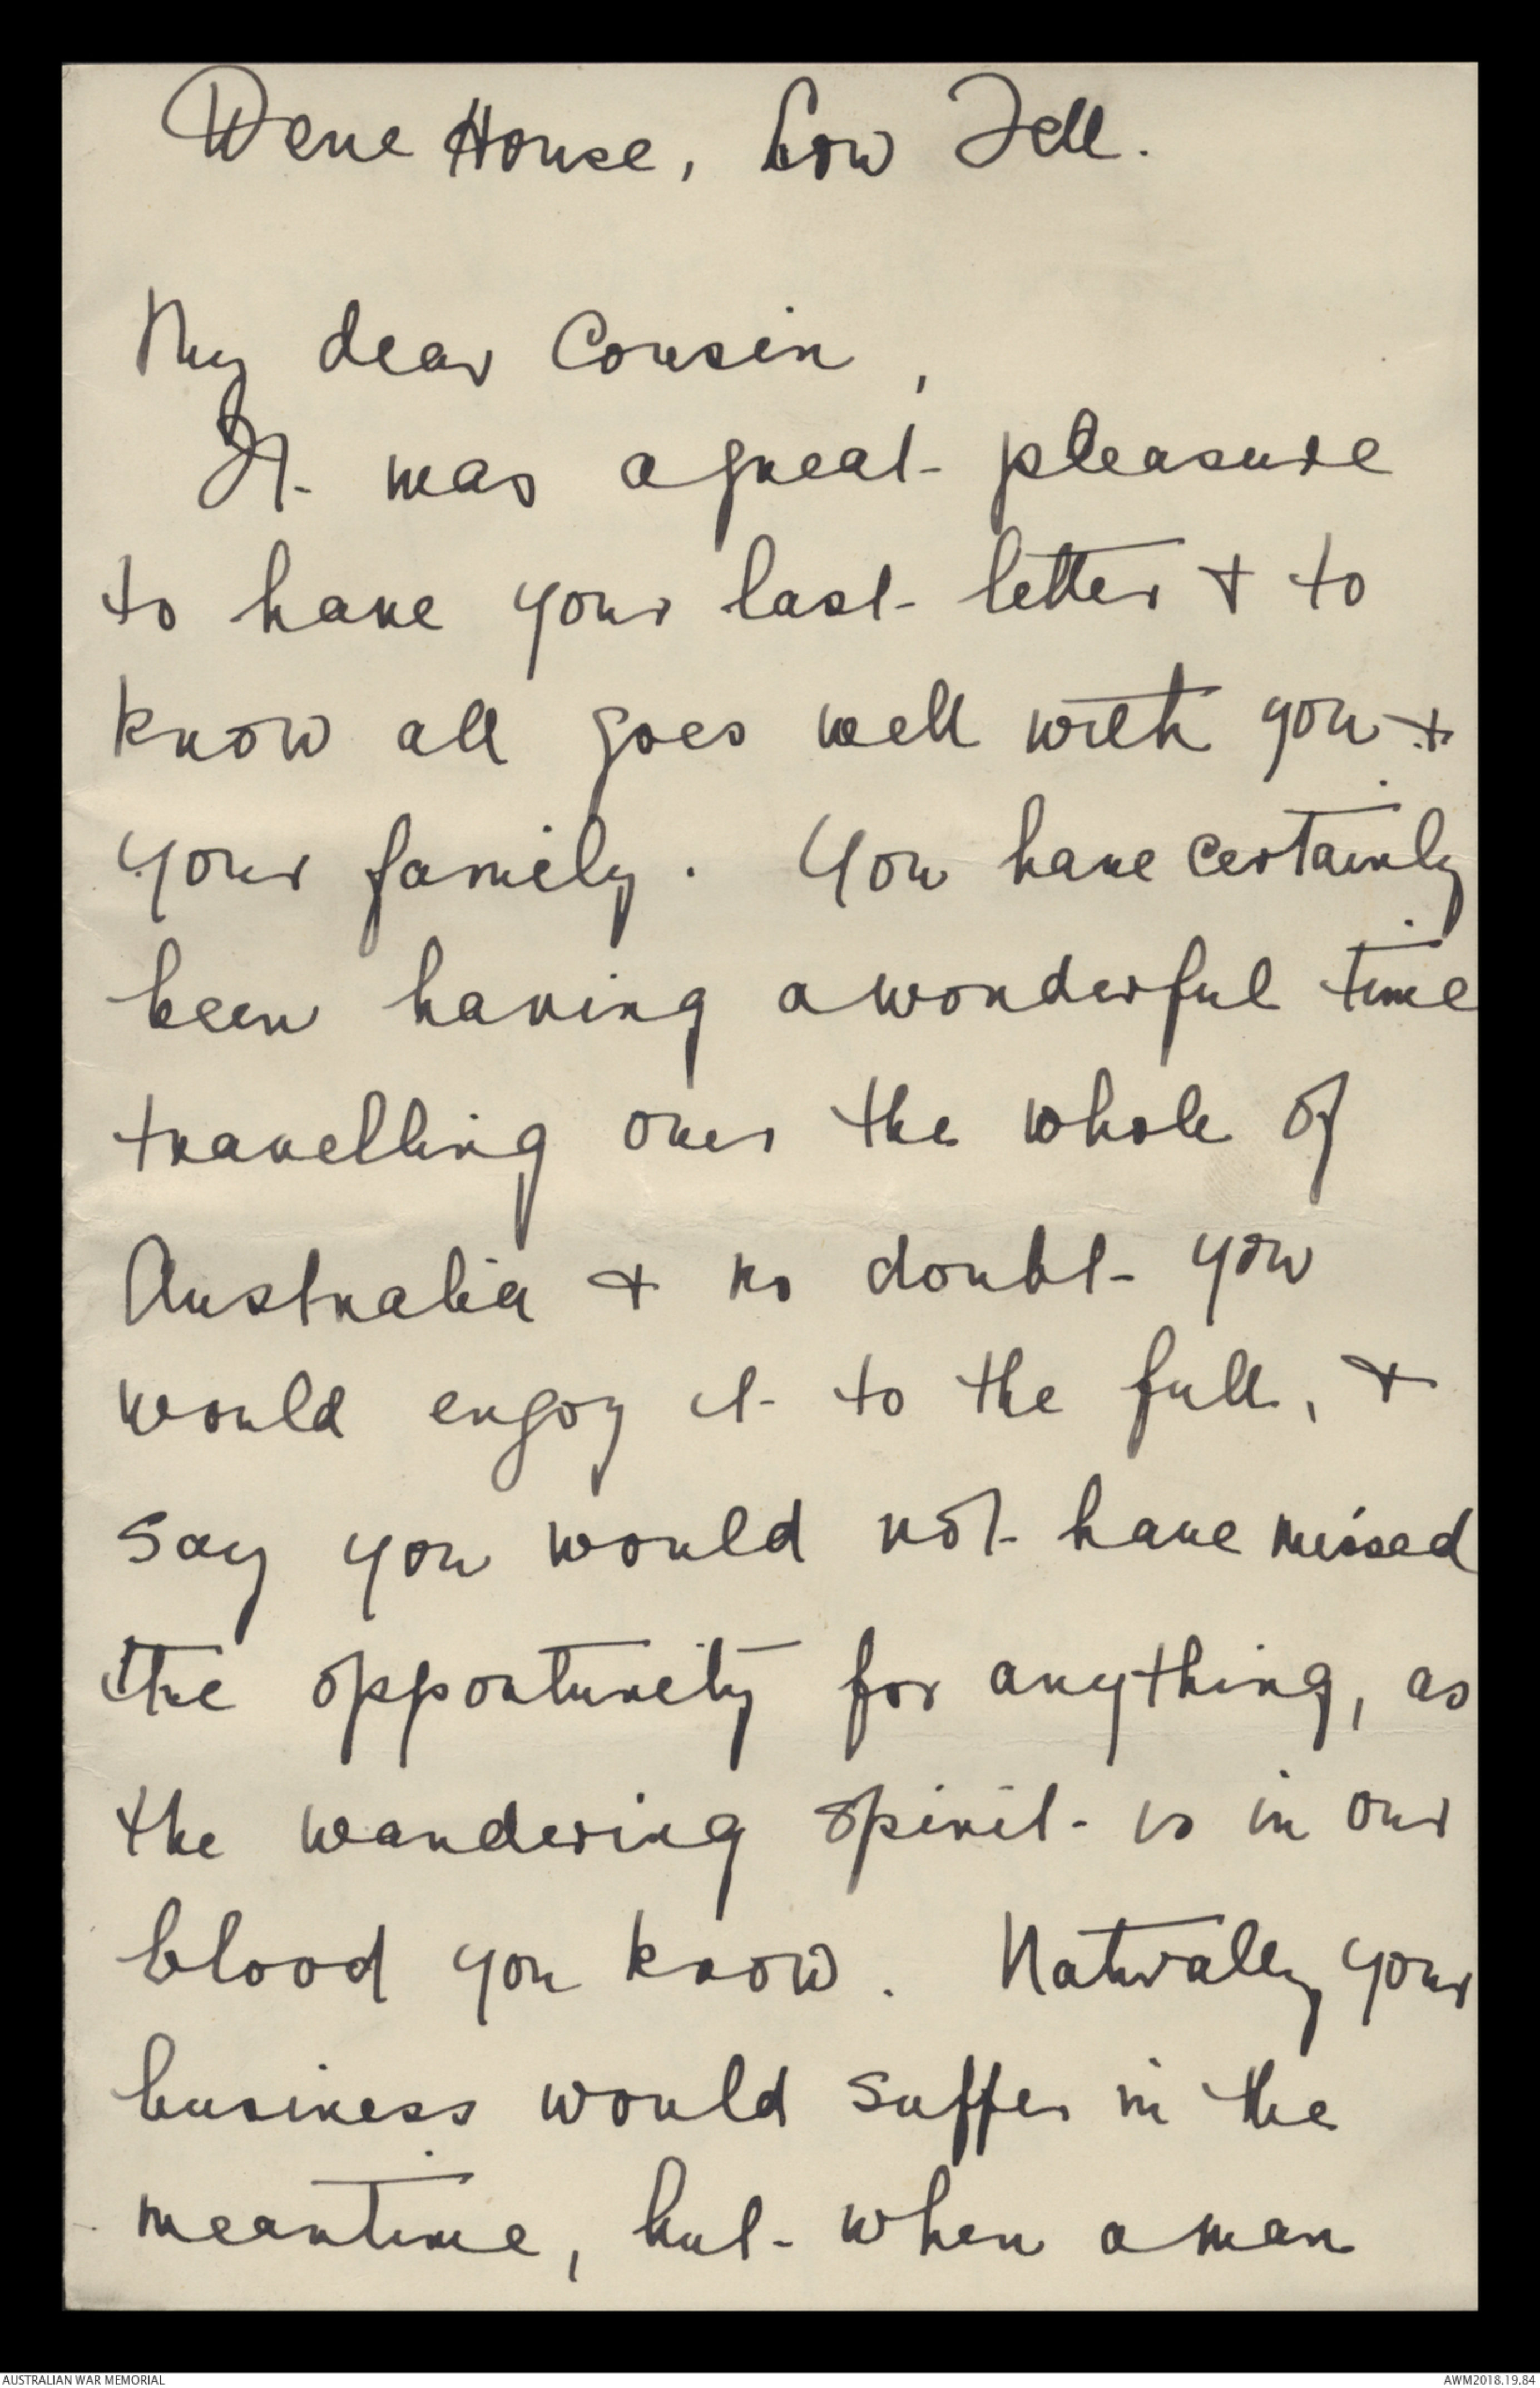 Dene House, Low Fell.
My dear Cousin,
It was a great pleasure
to have your last letter & to
know all goes well with you &
your family. You have certainly
been having a wonderful time
travelling over the whole of
Australia & no doubt you
would enjoy it to the full, &
say you would not have missed
the opportunity for anything, as
the wandering spirit is in our
blood you know. Naturally your
business would suffer in the
meantime, but when a man
AUSTRALIAN WAR MEMORIAL
AWM2018.19.84